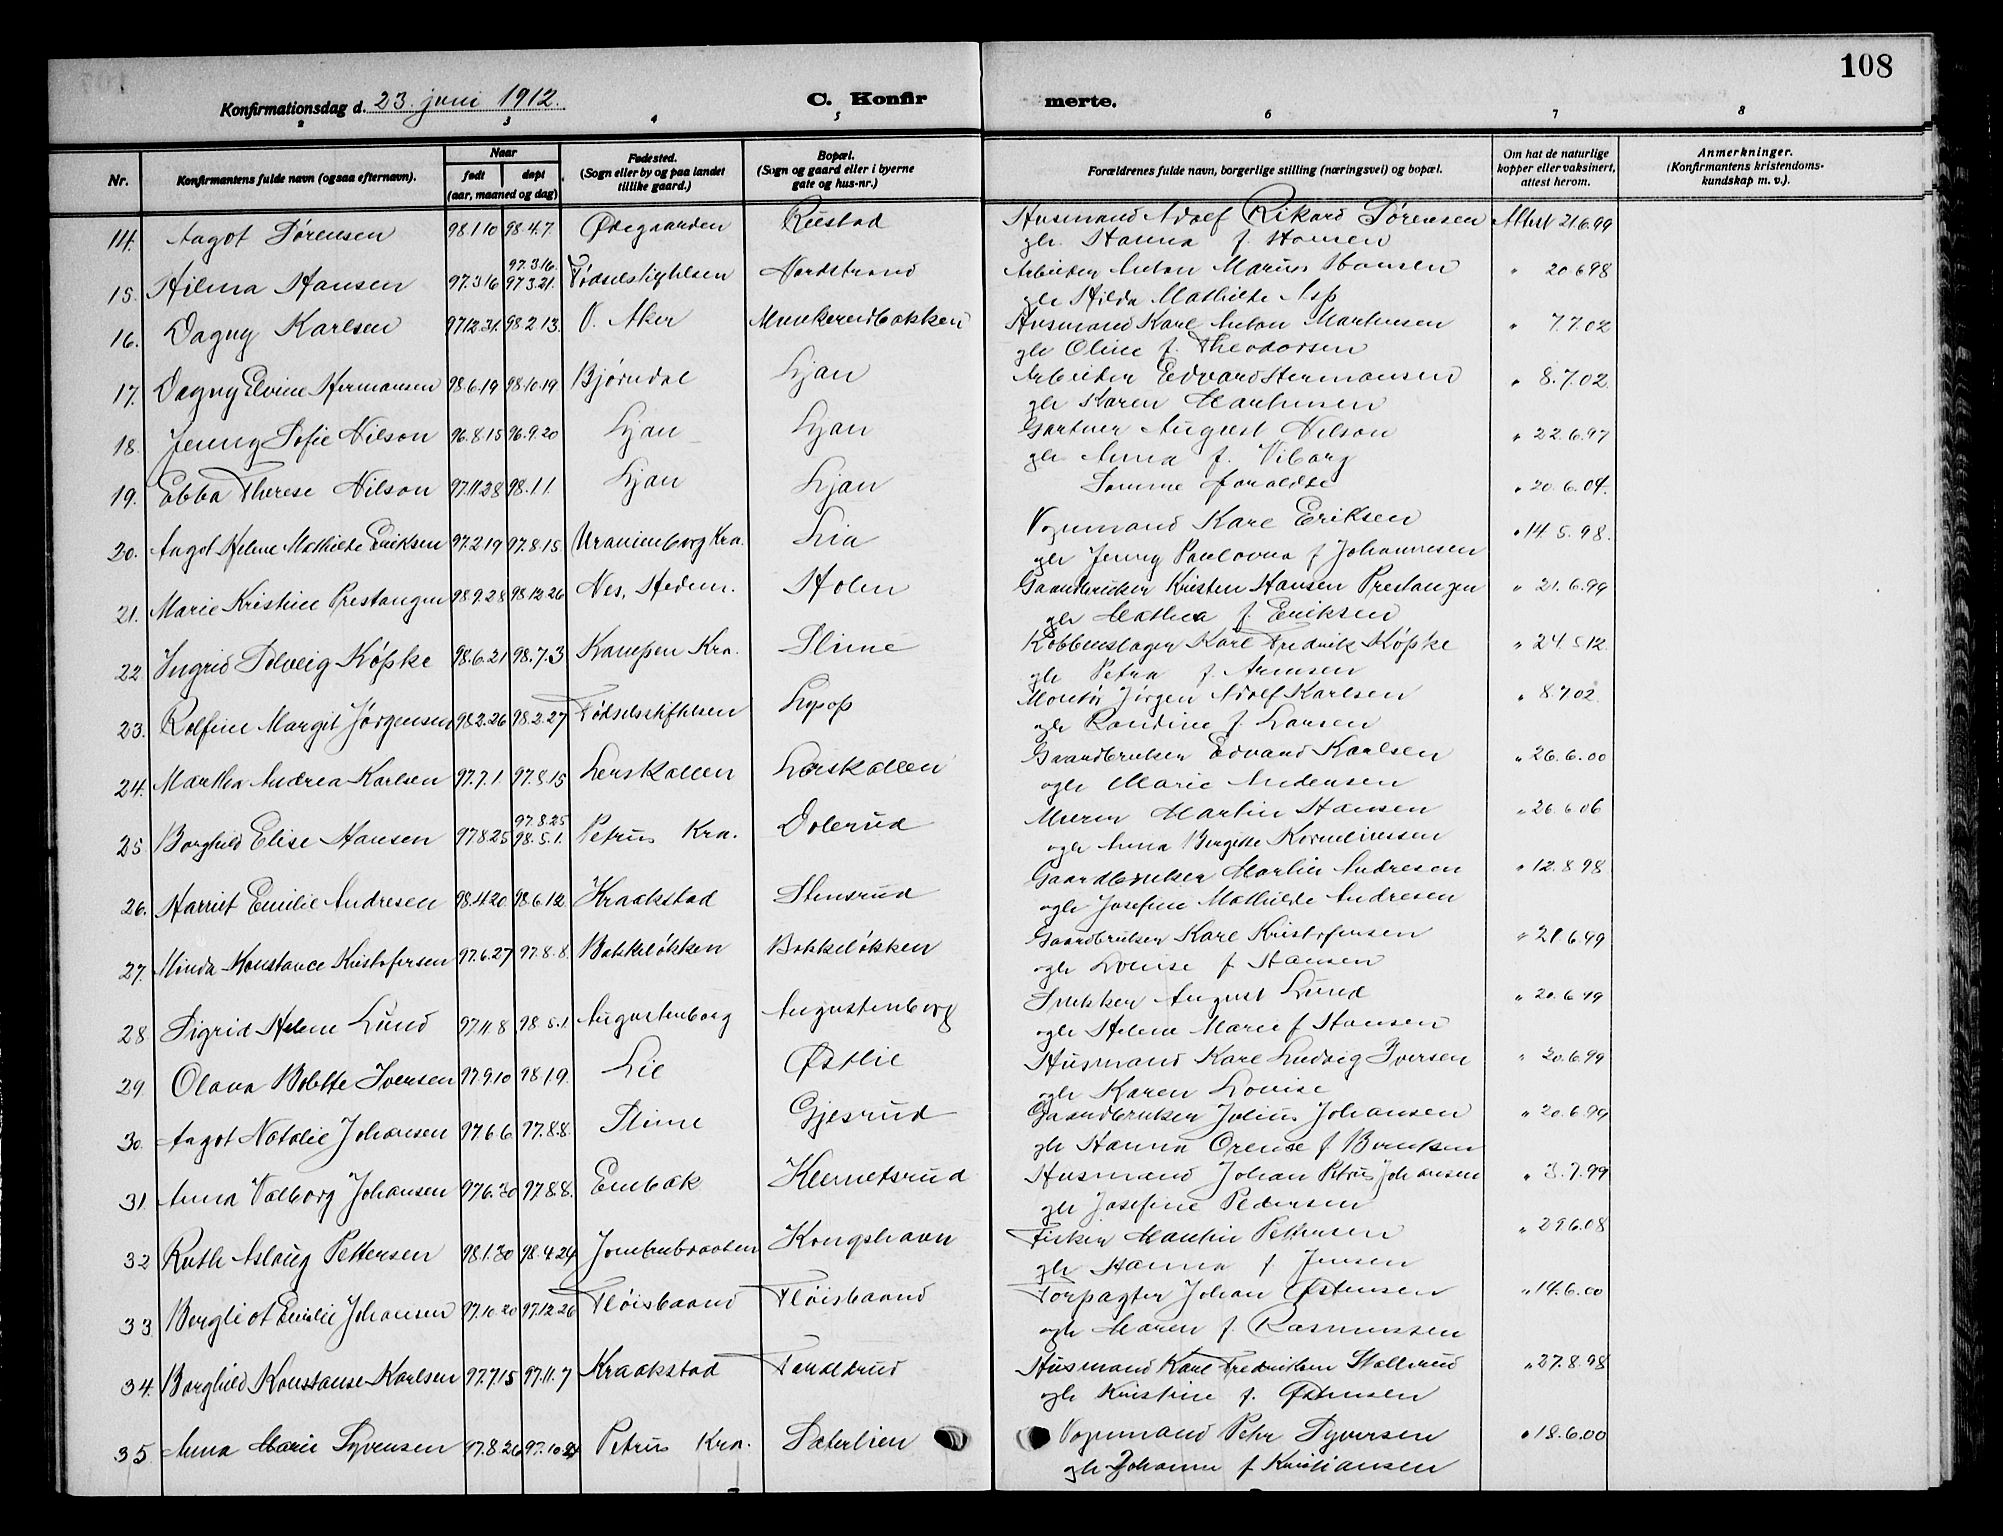 108
Konfirmationsdag d. 23. juni 1912. C. Konfirmerte.
2 3 4 5 6 7 8
Nr. Konfirmantens fulde navn (ogsaa efternavn). Naar født døpt (aar, maaned og dag) Fødested. (Sogn eller by og paa landet tillike gaard.) Bopæl. (Sogn og gaard eller i byerne gate og hus-nr.) Forældrenes fulde navn, borgerlige stilling (næringsvei) og bopæl. Om hat de naturlige kopper eller vaksinert, attest herom. Anmerkninger. (Konfirmantens kristendomskundskap m. v.).
14. Aagot Sørensen 98.1.10 98.4.7 Ødegaarden Rustad Husmand Adolf Rikard Sørensen Attest 21.6.99
gh. Hanna f. Hansen
97.3.16.
15. Hilma Hansen 97.3.16 97.3.21. Fødselsstiftelsen Nordstrand Arbeider Anton Marius Hansen " 20.6.98
gh Hilda Mathilde Asp
16. Dagny Karlsen 97.12.31. 98.2.13. V. Aker Munkerudbakken Husmand Karl Anton Martinsen " 7.7.02
gh Oline f. Theodorsen
17. Dagny Elvine Hermansen 98.6.19 98.10.19 Bjørndal Ljan Arbeider Edvard Hermansen " 8.7.02.
gh Karen Martinsen
18. Jenny Sofie Nilson 96.8.15 96.9.20 Ljan Ljan Gartner August Nilson " 22.6.97
gh Anna f. Viborg
19. Ebba Therese Nilson 97.11.28 98.1.1. Ljan Ljan Samme forældre " 20.6.04.
20. Aagot Helene Mathilde Eriksen 97.2.19 97.8.15 Uranienborg Kra. Lia Vognmand Karl Eriksen " 14.5.98.
gh Jenny Paulovna f Johannesen
21. Marie Kristine Prestangen 98.9.28 98.12.26 Nes, Hedem. Holen Gaardbruker Kristen Hansen Prestangen " 21.6.99
gh Mathea f. Eriksen
22 Ingrid Solveig Köpke 98.6.21 98.7.3 Kampen Kra. Slime Kobberslager Karl Fredrik Köpke " 24.5.12.
gh Petra f. Arnesen
23. Rolfine Margit Jørgensen 98.2.26 98.2.27 Fødselsstiftelsen Lysop Montör Jörgen Adolf Karlsen " 8.7.02.
gh Randine f. Larsen
24. Martha Andrea Karlsen 97.7.1. 97.8.15 Lerskallen Lerskallen Gaardbruker Edvard Karlsen " 26.6.00
ogh Marie Andersen
97.8.25
25 Borghild Elise Hansen 97.8.25 98.5.1. Petrus Kra. Dolerud Murer Martin Hansen " 26.6.06
ogh Anna Bergitte Korneliussen
26. Harriet Emilie Andresen 98.4.20 98.6.12 Kraakstad Stensrud Gaardbruker Martin Andresen " 12.8.98
ogh Josefine Mathilde Andresen
27. Minda Konstance Kristofersen 97.6.27 97.8.8. Bakkeløkken Bakkeløkken Gaardbruker Karl Kristofersen " 21.6.99
ogh Louise f Hansen
28. Sigrid Helene Lund 97.11.8 98.5.1. Augustenborg Augustenborg Snekker August Lund " 20.6.99
ogh Helene Marie f Hansen
29. Olava Bolette Iversen 97.9.10 98.1.9. Lie Østlie Husmand Karl Ludvig Iversen " 20.6.99
ogh Karen Lovise
30. Aagot Natalie Johansen 97.6.6 97.8.8. Slime Gjesrud Gaardbruker Julius Johansen " 20.6.99
gh Hanna Orense f Berntsen
31. Anna Valborg Johansen 97.6.30 97.8.8. Enebak Klemetsrud Husmand Johan Petrus Johansen " 3.7.99
gh Josefine Pedersen
32 Ruth Aslaug Pettersen 98.1.30 98.4.24 Jomfrubraaten Kongshavn Fisker Martin Pettersen " 29.6.08
gh Hanna f Jensen
33 Bergliot Emilie Johansen 97.10.20 97.12.26 Fløisbaand Fløisbaand Forpagter Johan Østensen " 14.6.00
ogh Maren f. Rasmussen
34. Borghild Konstanse Karlsen 97.7.15 97.11.7 Kraakstad Taraldrud Husmand Karl Fredriksen Stallerud " 27.8.98
ogh Kristine f. Østensen
35 Anna Marie Syversen 97.8.26 97.10.24 Petrus Kra. Sæterlien Vognmand Peter Syversen " 18.6.00
ogh Johanne f Kristiansen